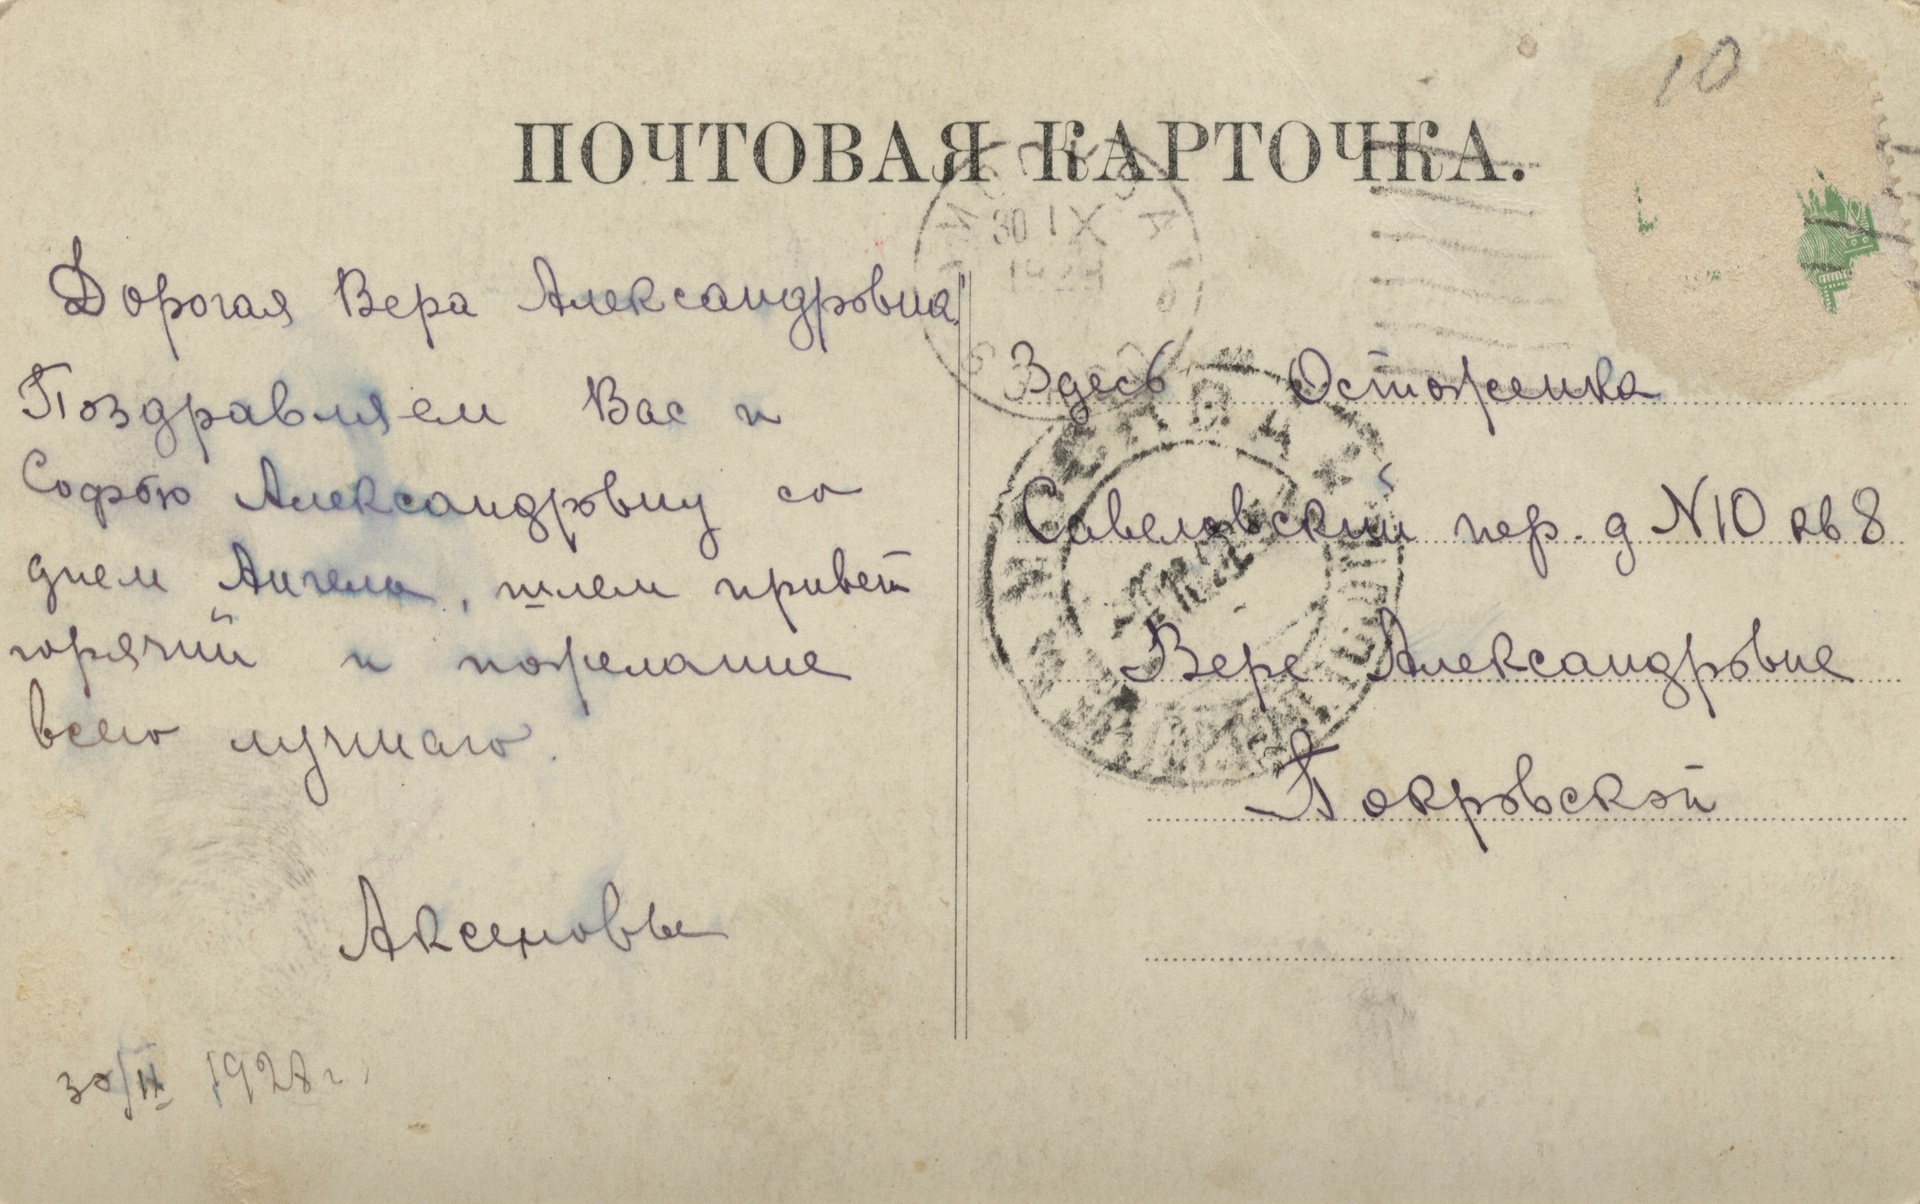 10
ПОЧТОВАЯ КАРТОЧКА.
МОСКВА
30 IX
Дорогая Вера Александровна!
Поздравляем Вас и
Софью Александровну со
днем Ангела, шлем привет
горячий и пожелание
всего лучшаго.
Аксеновы
1928 г.
Здесь Остоженка
Савеловский пер. д N 10 кв 8
Вере Александровне
Покровской
МОСКВА